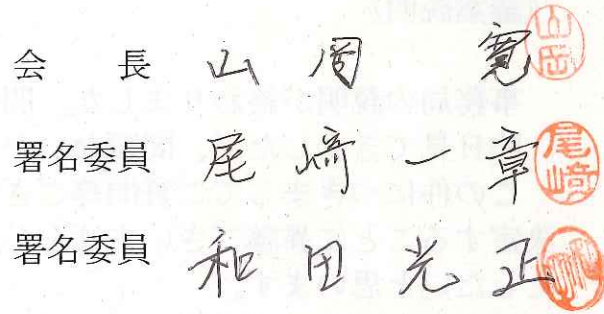 会長 山岡 寛 山岡
署名委員 尾﨑一章 尾﨑
署名委員 和田光正